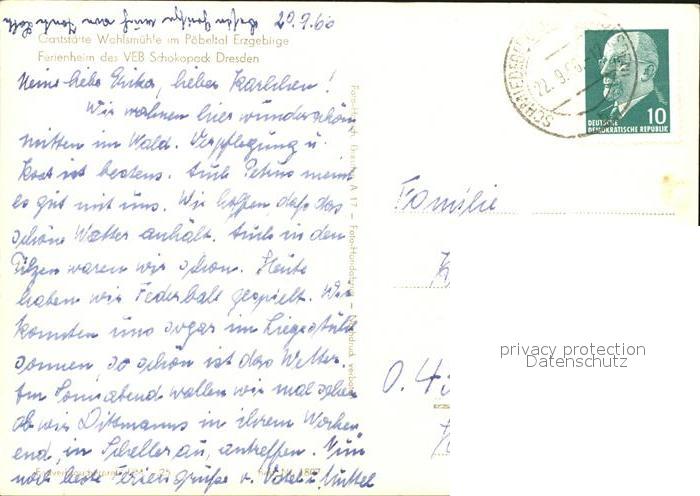 20.9.66
Gaststätte Wahlsmühle im Pöbeltal Erzgebirge
Ferienheim des VEB Schokopack Dresden
Meine liebe Erika, lieber Karlchen!
Wir wohnen hier wunderschön
mitten im Wald. Verpflegung u.
Kost ist bestens. Auch Petrus meint
es gut mit uns. Wir hoffen, dass das
schöne Wetter anhält. Auch in den
Pilzen waren wir schon. Heute
haben wir Federball gespielt. Wir
konnten uns sogar im Liegestuhl
sonnen, so schön ist das Wetter.
Am Sonnabend wollen wir mal sehen
ob wir Dittmanns in ihrem Wochen
end, in Schellerau, antreffen. Nun
noch beste Feriengrüße v. Vater u. Mutter
A 17 – Foto-Handabzug
10
DEUTSCHE
DEMOKRATISCHE REPUBLIK
22.9.66
Familie
privacy protection
Datenschutz